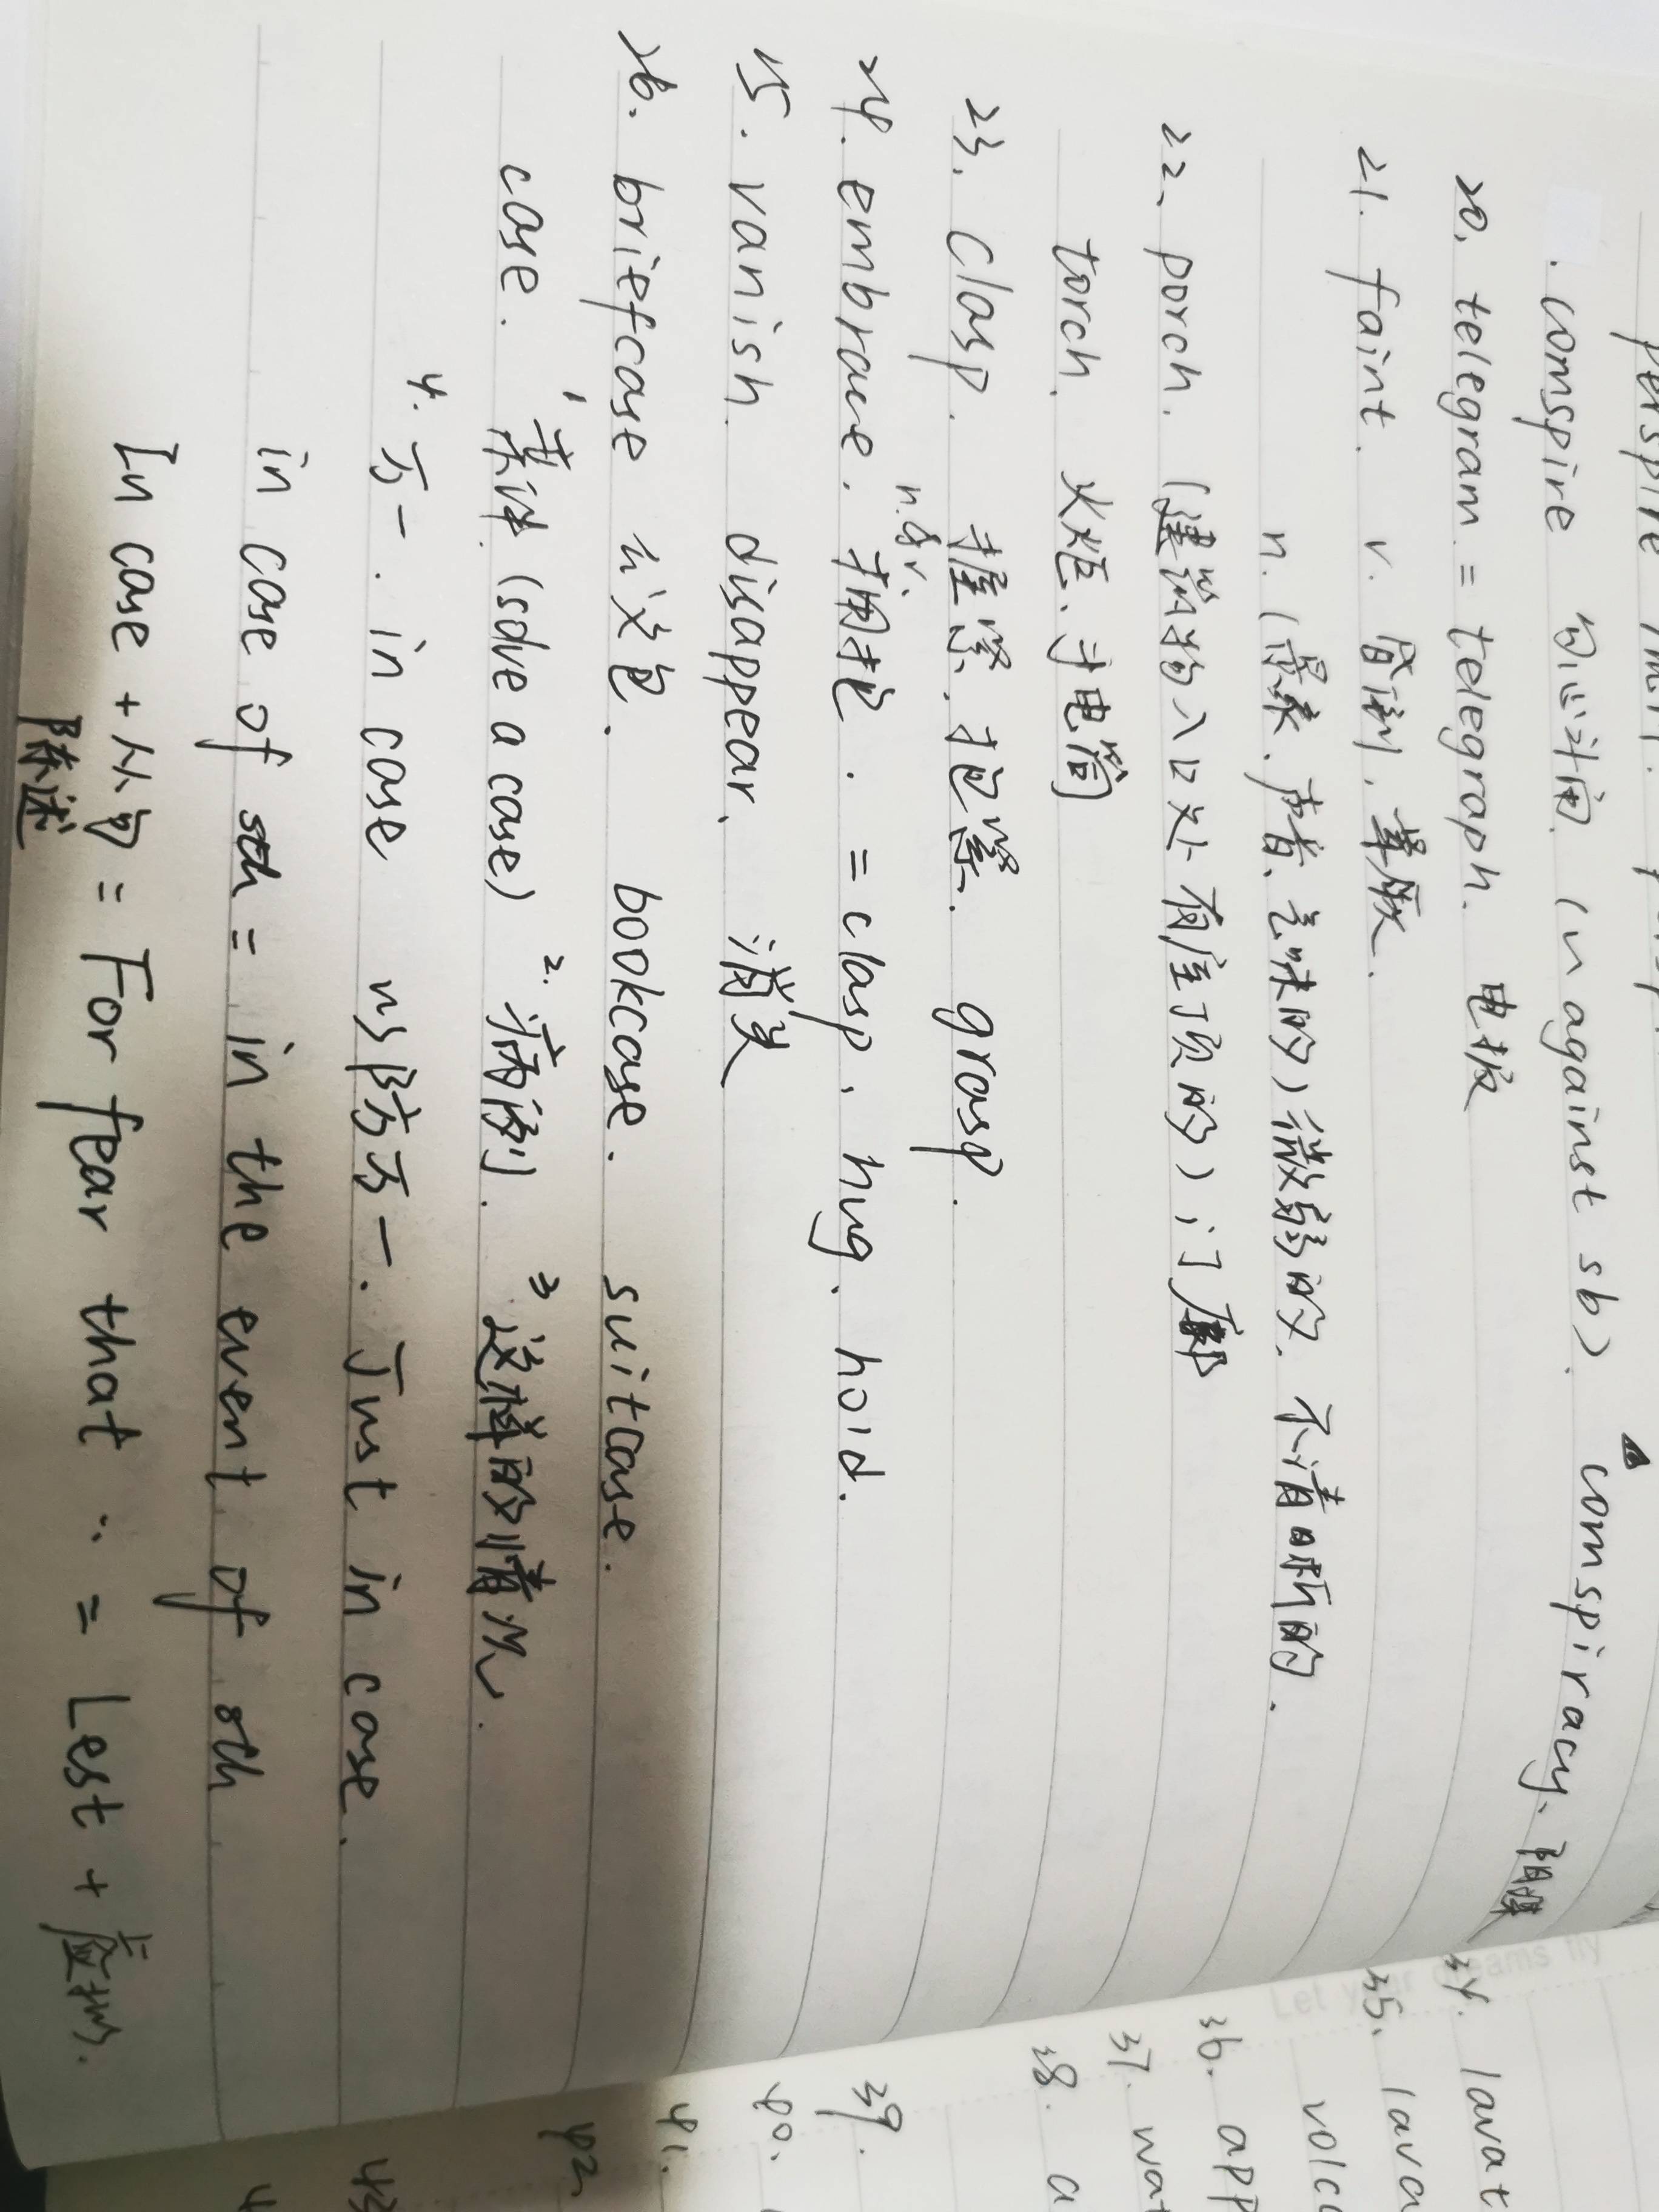 . comspire 勾心斗角 (v against sb). ▲ comspiracy. 阴谋
20. telegram = telegraph. 电报
21. faint. v. 昏倒, 晕厥.
n. (景象. 声音、气味的) 微弱的. 不清晰的.
22、porch. (建筑物入口处有屋顶的) 门廊
torch. 火炬、手电筒
23. clasp. 握紧. 抱紧. grasp.
24. embrace. n.&v. 拥抱. = clasp. hug. hold.
25. vanish. disappear. 消失
26. briefcase 公文包. bookcase. suitcase.
case. 1 案件 (solve a case) 2. 病例. 3 这样的情况.
4. 万一. in case 以防万一. Just in case.
in case of sth = in the event of sth
In case + 从句 = For fear that ∵ = Lest + 虚拟.
陈述
Let your dreams fly
34. lavat
35. lava
volc
36. app
37. wat
38. a
39.
40.
41.
42.
43
4